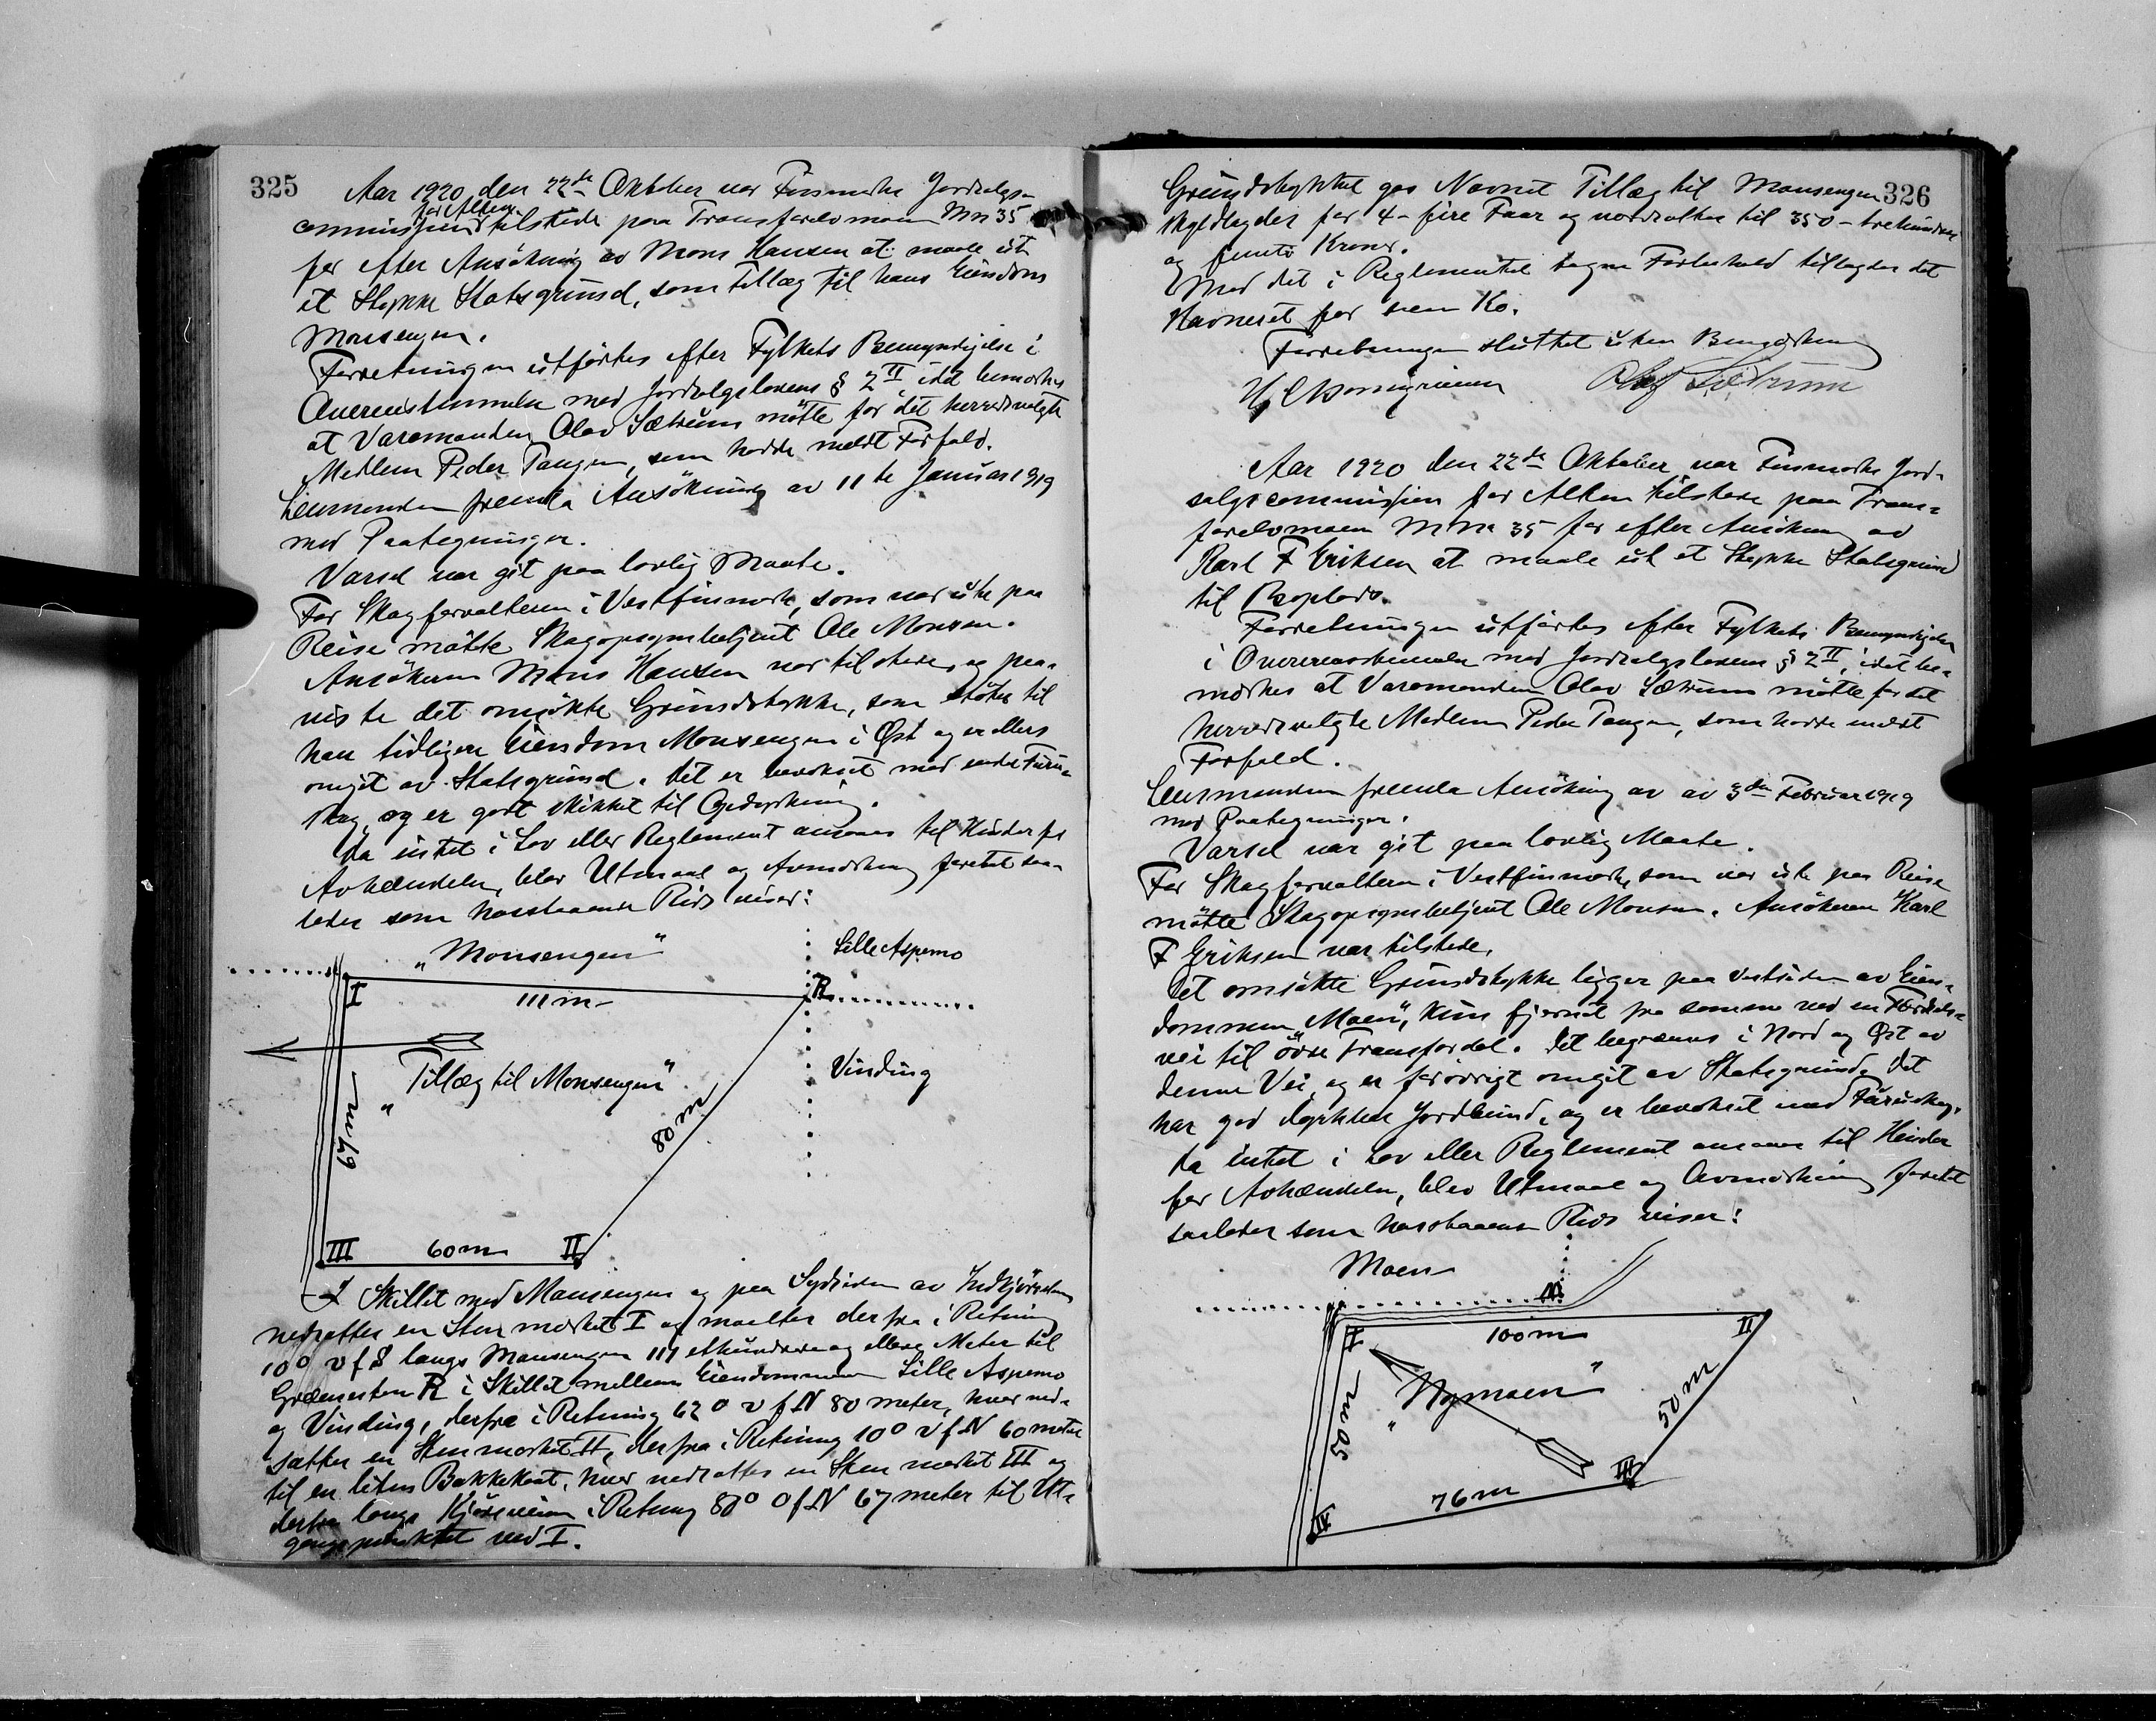 325
Aar 1920 den 22de Oktober var Finmarkens Jordsalgs-
commission for Alten tilstede paa Transfarelvmoen Mn 35
for efter Ansökning av Mons Hansen at maale ut
et Stykke Statsgrund, som Tillæg til hans Eiendom
Monsengen.
Forretningen utförtes efter Fylkets Bemyndigelse i
Overensstemmelse med Jordsalgslovens § 2 II idet bemerkes
at Varamanden Olav Sætrum mötte for det herredsvalgte
Medlem Peder Tangen, som hadde meldt Forfald.
Lensmanden fremla Ansökning av 11te Januar 1919
med Paategninger.
Varsel var git paa lovlig Maate.
For Skogforvalteren i Vestfinmark, som var ute paa
Reise mötte Skogopsynsbetjent Ole Monsen.
Ansökeren Mons Hansen var tilstede, og paa-
viste det omsökte Grundstykke, som stöter til
han tidligere Eiendom Monsengen i Øst og er ellers
omgit av Statsgrund. Det er bevokset med endel Furu-
skog, og er godt skikket til Opdyrkning.
Da intet i Lov eller Reglement ansaaes til Hinder for
Avhændelse, blev Utmaal og Avmerkning foretat saa-
ledes som hosstaaende Rids viser:
"Monsengen"
Lille Aspemo
I
111 m
R
"Tillæg til Monsengen"
Vinding
67 m
80 m
III
60 m
II
I Skillet med Monsengen og paa Sydsiden av Indkjörselen
nedsattes en Sten merket I og maaltes derfra i Retning
10° v f S langs Monsengen 111 ethundrede og elleve Meter til
Grænsesten R i Skillet mellem Eiendommene Lille Aspemo
og Vinding, derfra i Retning 62° v f N 80 meter, hvor ned-
sattes en Sten merket II, derfra i Retning 10° v f N 60 meter
til en liten Bakkekant, hvor nedsattes en Sten merket III og
derfra langs Kjöreveien i Retning 80° O f N 67 meter til Ut-
gangspunktet ved I.
326
Grundstykket gas Navnet Tillæg til Monsengen
skyldlagdes for 4 - fire Faar og verdsattes til 350 - trehundrede
og femti Kroner.
Med det i Reglementet tagne Forbehold tillagdes det
Havneret for een Ko.
Forretningen sluttet uten Bemerkning
Olaf Sætrum
Aar 1920 den 22de Oktober var Finmarkens Jord-
salgscommission for Alten tilstede paa Trans-
farelvmoen Mn 35 for efter Ansökning av
Karl F Eriksen at maale ut et Stykke Statsgrund
til Boplads.
Forretningen utförtes efter Fylkets Bemyndigelse
i Overensstemmelse med Jordsalgslovens § 2 II, idet be-
merkes at Varamanden Olav Sætrum mötte for det
herredsvalgte Medlem Peder Tangen, som hadde meldt
Forfald.
Lensmanden fremla Ansökning av av 3die Februar 1919
med Paategninger.
Varsel var git paa lovlig Maate.
For Skogforvalteren i Vestfinmark, som var ute paa Reise
mötte Skogopsynsbetjent Ole Monsen. Ansökeren Karl
F Eriksen var tilstede.
Det omsökte Grundstykke ligger paa Vestsiden av Eien-
dommen "Moen", kun fjernet fra samme ved en Færdsels-
vei til övre Transfardal. Det begrænses i Nord og Øst av
denne Vei og er forövrigt omgit av Statsgrund. Det
har god dyrkbar Jordbund, og er bevokset med Furuskog.
Da intet i Lov eller Reglement ansaaes til Hinder
for Avhændelse, blev Utmaal og Avmerkning foretat
saaledes som hosstaaende Rids viser:
Moen
I
100 m
II
"Nymoen"
50 m
50 m
III
76 m
IV